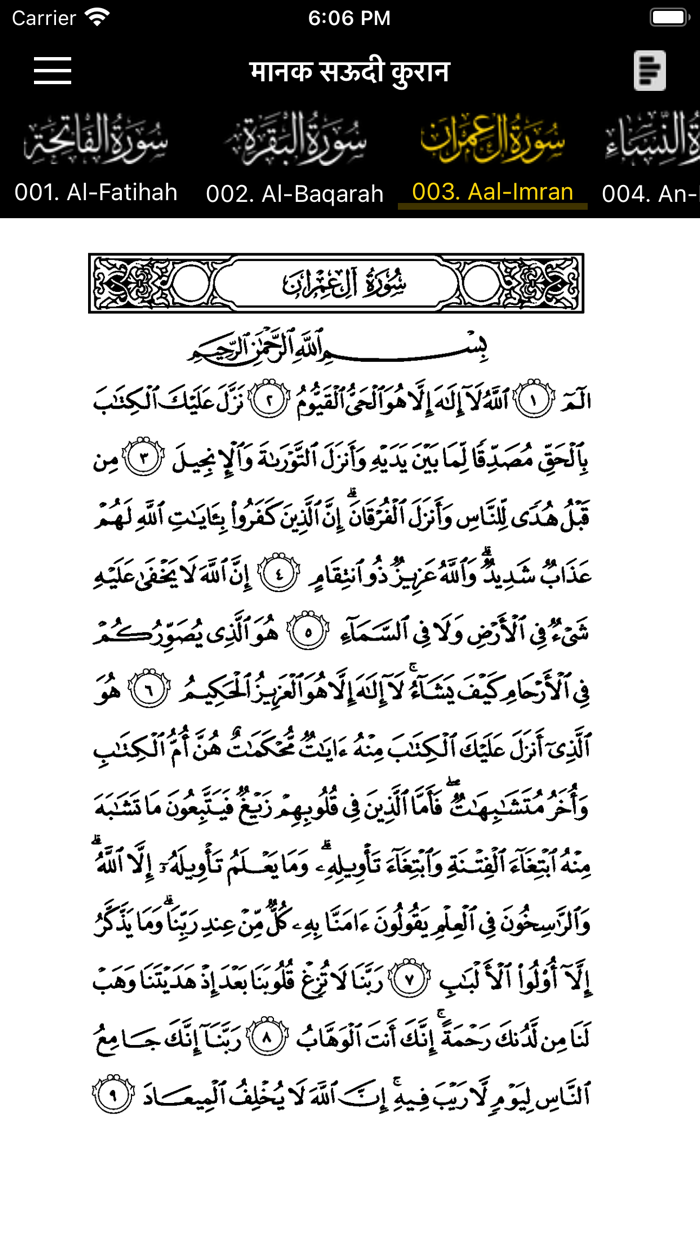 Carrier 6:06 PM
मानक सऊदी कुरान
سُورَةُ الْفَاتِحَة سُورَةُ الْبَقَرَة سُورَةُ آلِ عِمْرَان ةُ النِّسَاء
001. Al-Fatihah 002. Al-Baqarah 003. Aal-Imran 004. An-
سُورَةُ آلِ عِمْرَان
بِسْمِ ٱللَّهِ ٱلرَّحْمَٰنِ ٱلرَّحِيمِ
الٓمٓ ١ ٱللَّهُ لَآ إِلَٰهَ إِلَّا هُوَ ٱلْحَىُّ ٱلْقَيُّومُ ٢ نَزَّلَ عَلَيْكَ ٱلْكِتَٰبَ
بِٱلْحَقِّ مُصَدِّقًا لِّمَا بَيْنَ يَدَيْهِ وَأَنزَلَ ٱلتَّوْرَىٰةَ وَٱلْإِنجِيلَ ٣ مِن
قَبْلُ هُدًى لِّلنَّاسِ وَأَنزَلَ ٱلْفُرْقَانَ ۗ إِنَّ ٱلَّذِينَ كَفَرُوا۟ بِـَٔايَٰتِ ٱللَّهِ لَهُمْ
عَذَابٌ شَدِيدٌ ۗ وَٱللَّهُ عَزِيزٌ ذُو ٱنتِقَامٍ ٤ إِنَّ ٱللَّهَ لَا يَخْفَىٰ عَلَيْهِ
شَىْءٌ فِى ٱلْأَرْضِ وَلَا فِى ٱلسَّمَآءِ ٥ هُوَ ٱلَّذِى يُصَوِّرُكُمْ
فِى ٱلْأَرْحَامِ كَيْفَ يَشَآءُ ۚ لَآ إِلَٰهَ إِلَّا هُوَ ٱلْعَزِيزُ ٱلْحَكِيمُ ٦ هُوَ
ٱلَّذِىٓ أَنزَلَ عَلَيْكَ ٱلْكِتَٰبَ مِنْهُ ءَايَٰتٌ مُّحْكَمَٰتٌ هُنَّ أُمُّ ٱلْكِتَٰبِ
وَأُخَرُ مُتَشَٰبِهَٰتٌ ۖ فَأَمَّا ٱلَّذِينَ فِى قُلُوبِهِمْ زَيْغٌ فَيَتَّبِعُونَ مَا تَشَٰبَهَ
مِنْهُ ٱبْتِغَآءَ ٱلْفِتْنَةِ وَٱبْتِغَآءَ تَأْوِيلِهِۦ ۗ وَمَا يَعْلَمُ تَأْوِيلَهُۥٓ إِلَّا ٱللَّهُ ۗ
وَٱلرَّٰسِخُونَ فِى ٱلْعِلْمِ يَقُولُونَ ءَامَنَّا بِهِۦ كُلٌّ مِّنْ عِندِ رَبِّنَا ۗ وَمَا يَذَّكَّرُ
إِلَّآ أُو۟لُوا۟ ٱلْأَلْبَٰبِ ٧ رَبَّنَا لَا تُزِغْ قُلُوبَنَا بَعْدَ إِذْ هَدَيْتَنَا وَهَبْ
لَنَا مِن لَّدُنكَ رَحْمَةً ۚ إِنَّكَ أَنتَ ٱلْوَهَّابُ ٨ رَبَّنَآ إِنَّكَ جَامِعُ
ٱلنَّاسِ لِيَوْمٍ لَّا رَيْبَ فِيهِ ۚ إِنَّ ٱللَّهَ لَا يُخْلِفُ ٱلْمِيعَادَ ٩